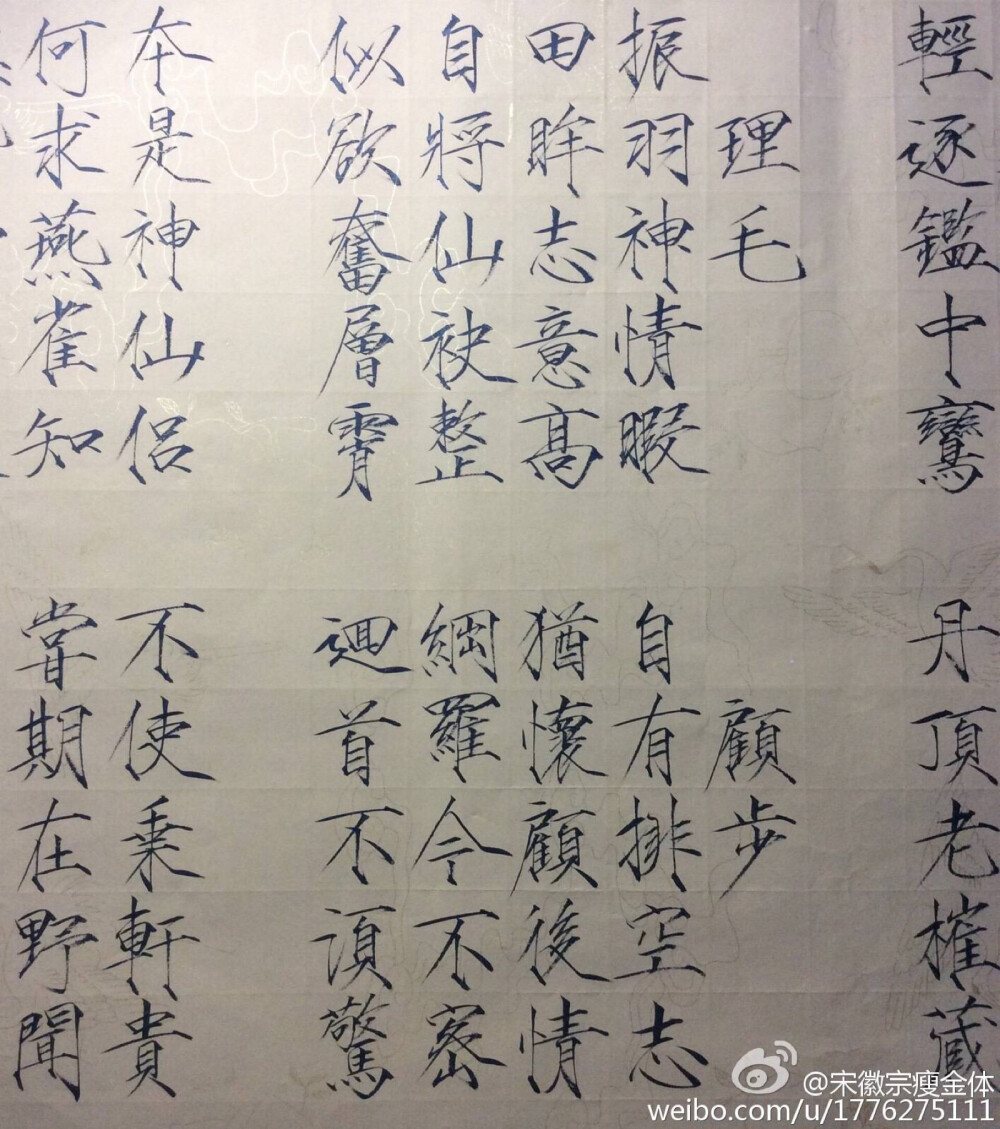 輕逐鑑中鸞
理毛
振羽神情暇
田眸志意高
自將仙袂整
似欲奮層霄
本是神仙侶
何求燕雀知
丹頂老摧藏
顧步
自有排空志
猶懷顧後情
綱羅今不宻
迴首不湏驚
不使乗軒貴
甞期在野聞
@宋徽宗瘦金体
weibo.com/u/1776275111